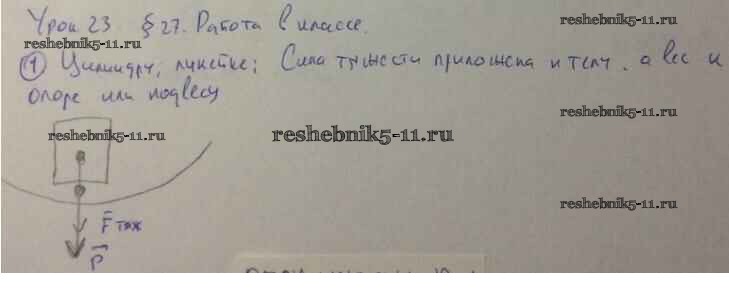 Урок 23 § 27. Работа в классе.
reshebnik5-11.ru
reshebnik5-11.ru
① Цилиндру, линейке; Сила тяжести приложена к телу, а вес к
опоре или подвесу
reshebnik5-11.ru
reshebnik5-11.ru
reshebnik5-11.ru
reshebnik5-11.ru
F тяж
P